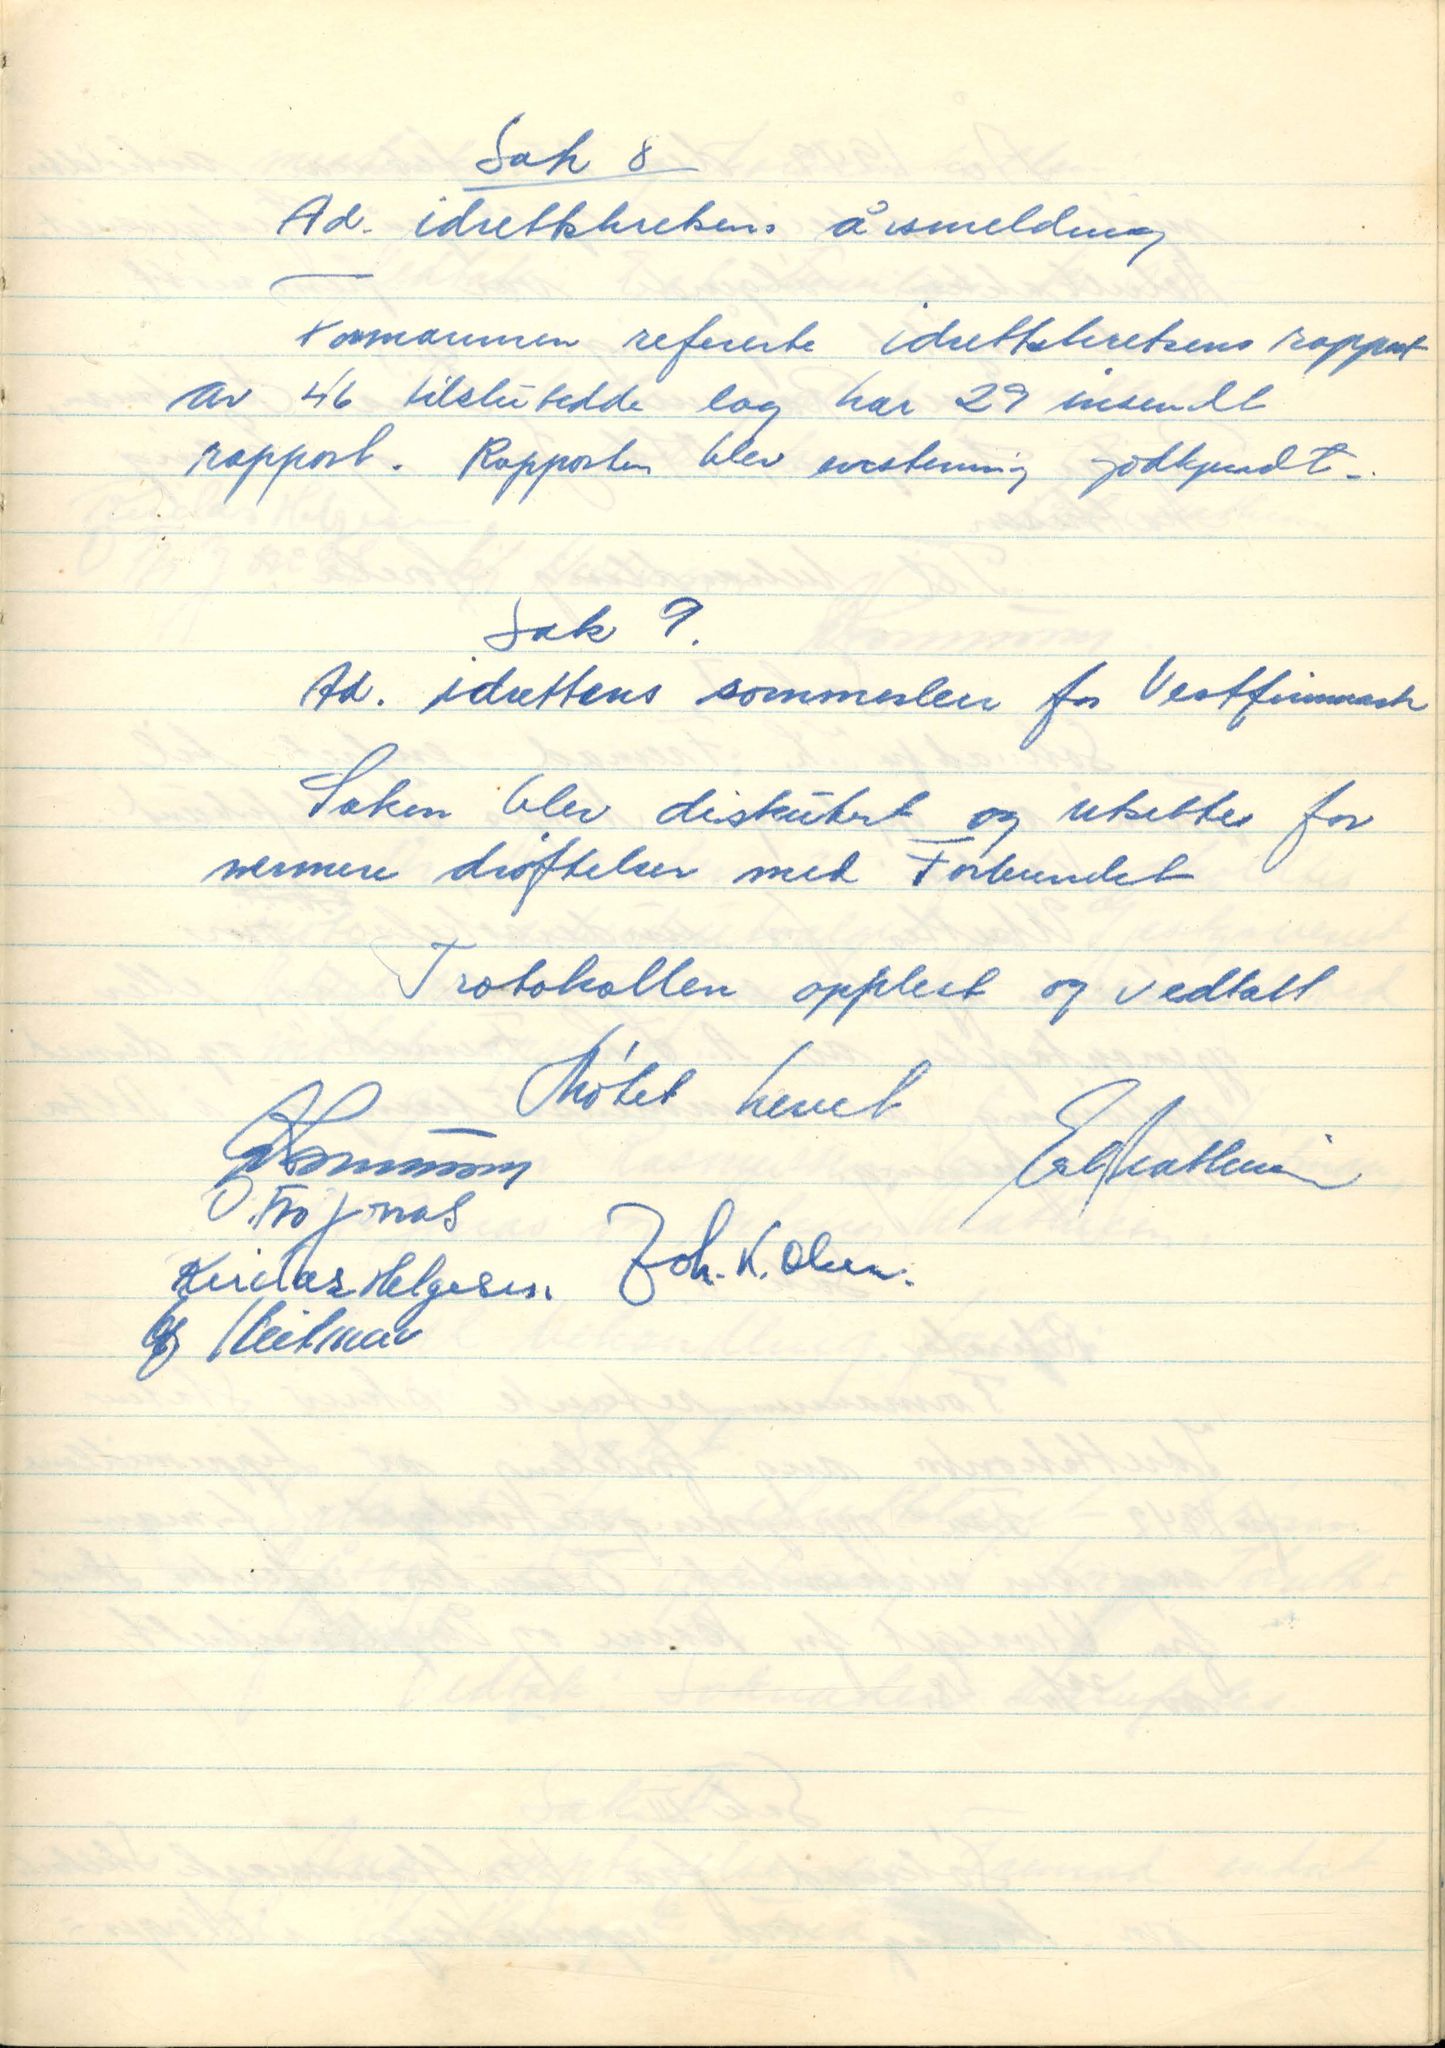 Sak 8
Ad. idrettskretsens årsmelding
Formannen refererte idrettskretsens rapport
av 46 tilsluttedde lag har 29 insendt
rapport. Rapporten blev enstemmig godkjendt.
Sak 9.
Ad. idrettens sommerleir for Vestfinnmark
Saken blev diskutert og utsettes for
nermere drøftelser med Forbundet
Protokollen opplest og vedtatt
Møtet hevet
Jonas
Helgesen.
Joh. K. Olsen.
Heitman